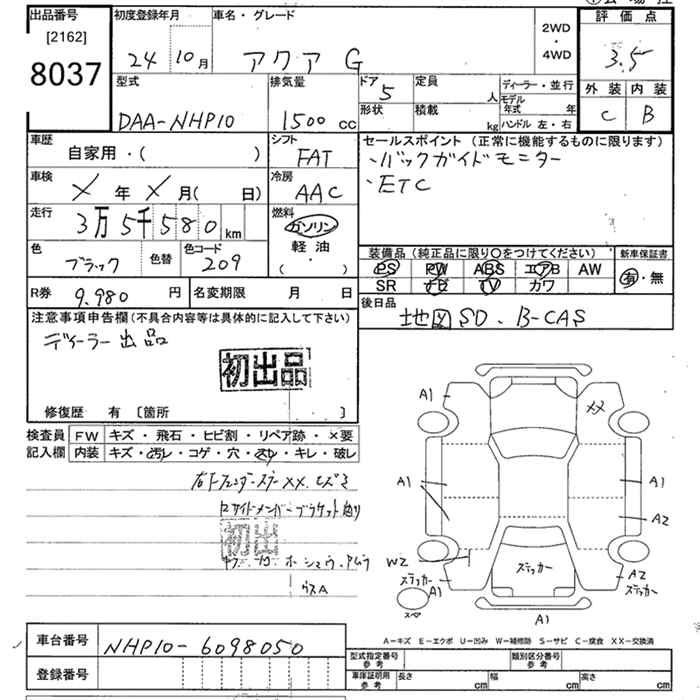 出品番号
[2162]
8037
初度登録年月
24 10月
車名・グレード
アクア G
2WD
・
4WD
評価点
3.5
外装 内装
C B
型式
DAA-NHP10
排気量
1500 cc
ドア
5
定員
人
形状
積載
kg
ディーラー・並行
モデル年式 年
ハンドル 左・右
車歴
自家用・( )
シフト
FAT
車検
X 年 X 月( 日)
冷房
AAC
走行
3万5千580 km
燃料
ガソリン
軽油
( ・ )
色
ブラック
色替
色コード
209
セールスポイント (正常に機能するものに限ります)
、バックガイドモニター
、ETC
装備品 (純正品に限り〇をつけてください)
PS PW ABS エアB AW
SR ナビ TV カワ
新車保証書
有・無
R券 9.980 円
名変期限 月 日
後日品
地図SD、B-CAS
注意事項申告欄(不具合内容等は具体的に記入して下さい)
ディーラー出品
初出品
修復歴 有 [箇所 ]
検査員 FW キズ・飛石・ヒビ割・リペア跡・×要
記入欄 内装 キズ・汚レ・コゲ・穴・スレ・キレ・破レ
初出
A1
XX
A1
A1
A2
W2
ステッカー
A1
ステッカー
A2
ステッカー
スペ
A1
A-キズ E-エクボ U-凹み W-補修跡 S-サビ C-腐食 XX-交換済
車台番号 NHP10-6098050
登録番号
型式指定番号 参考
類別区分番号 参考
車庫証明用 参考 長さ cm 幅 cm 高さ cm